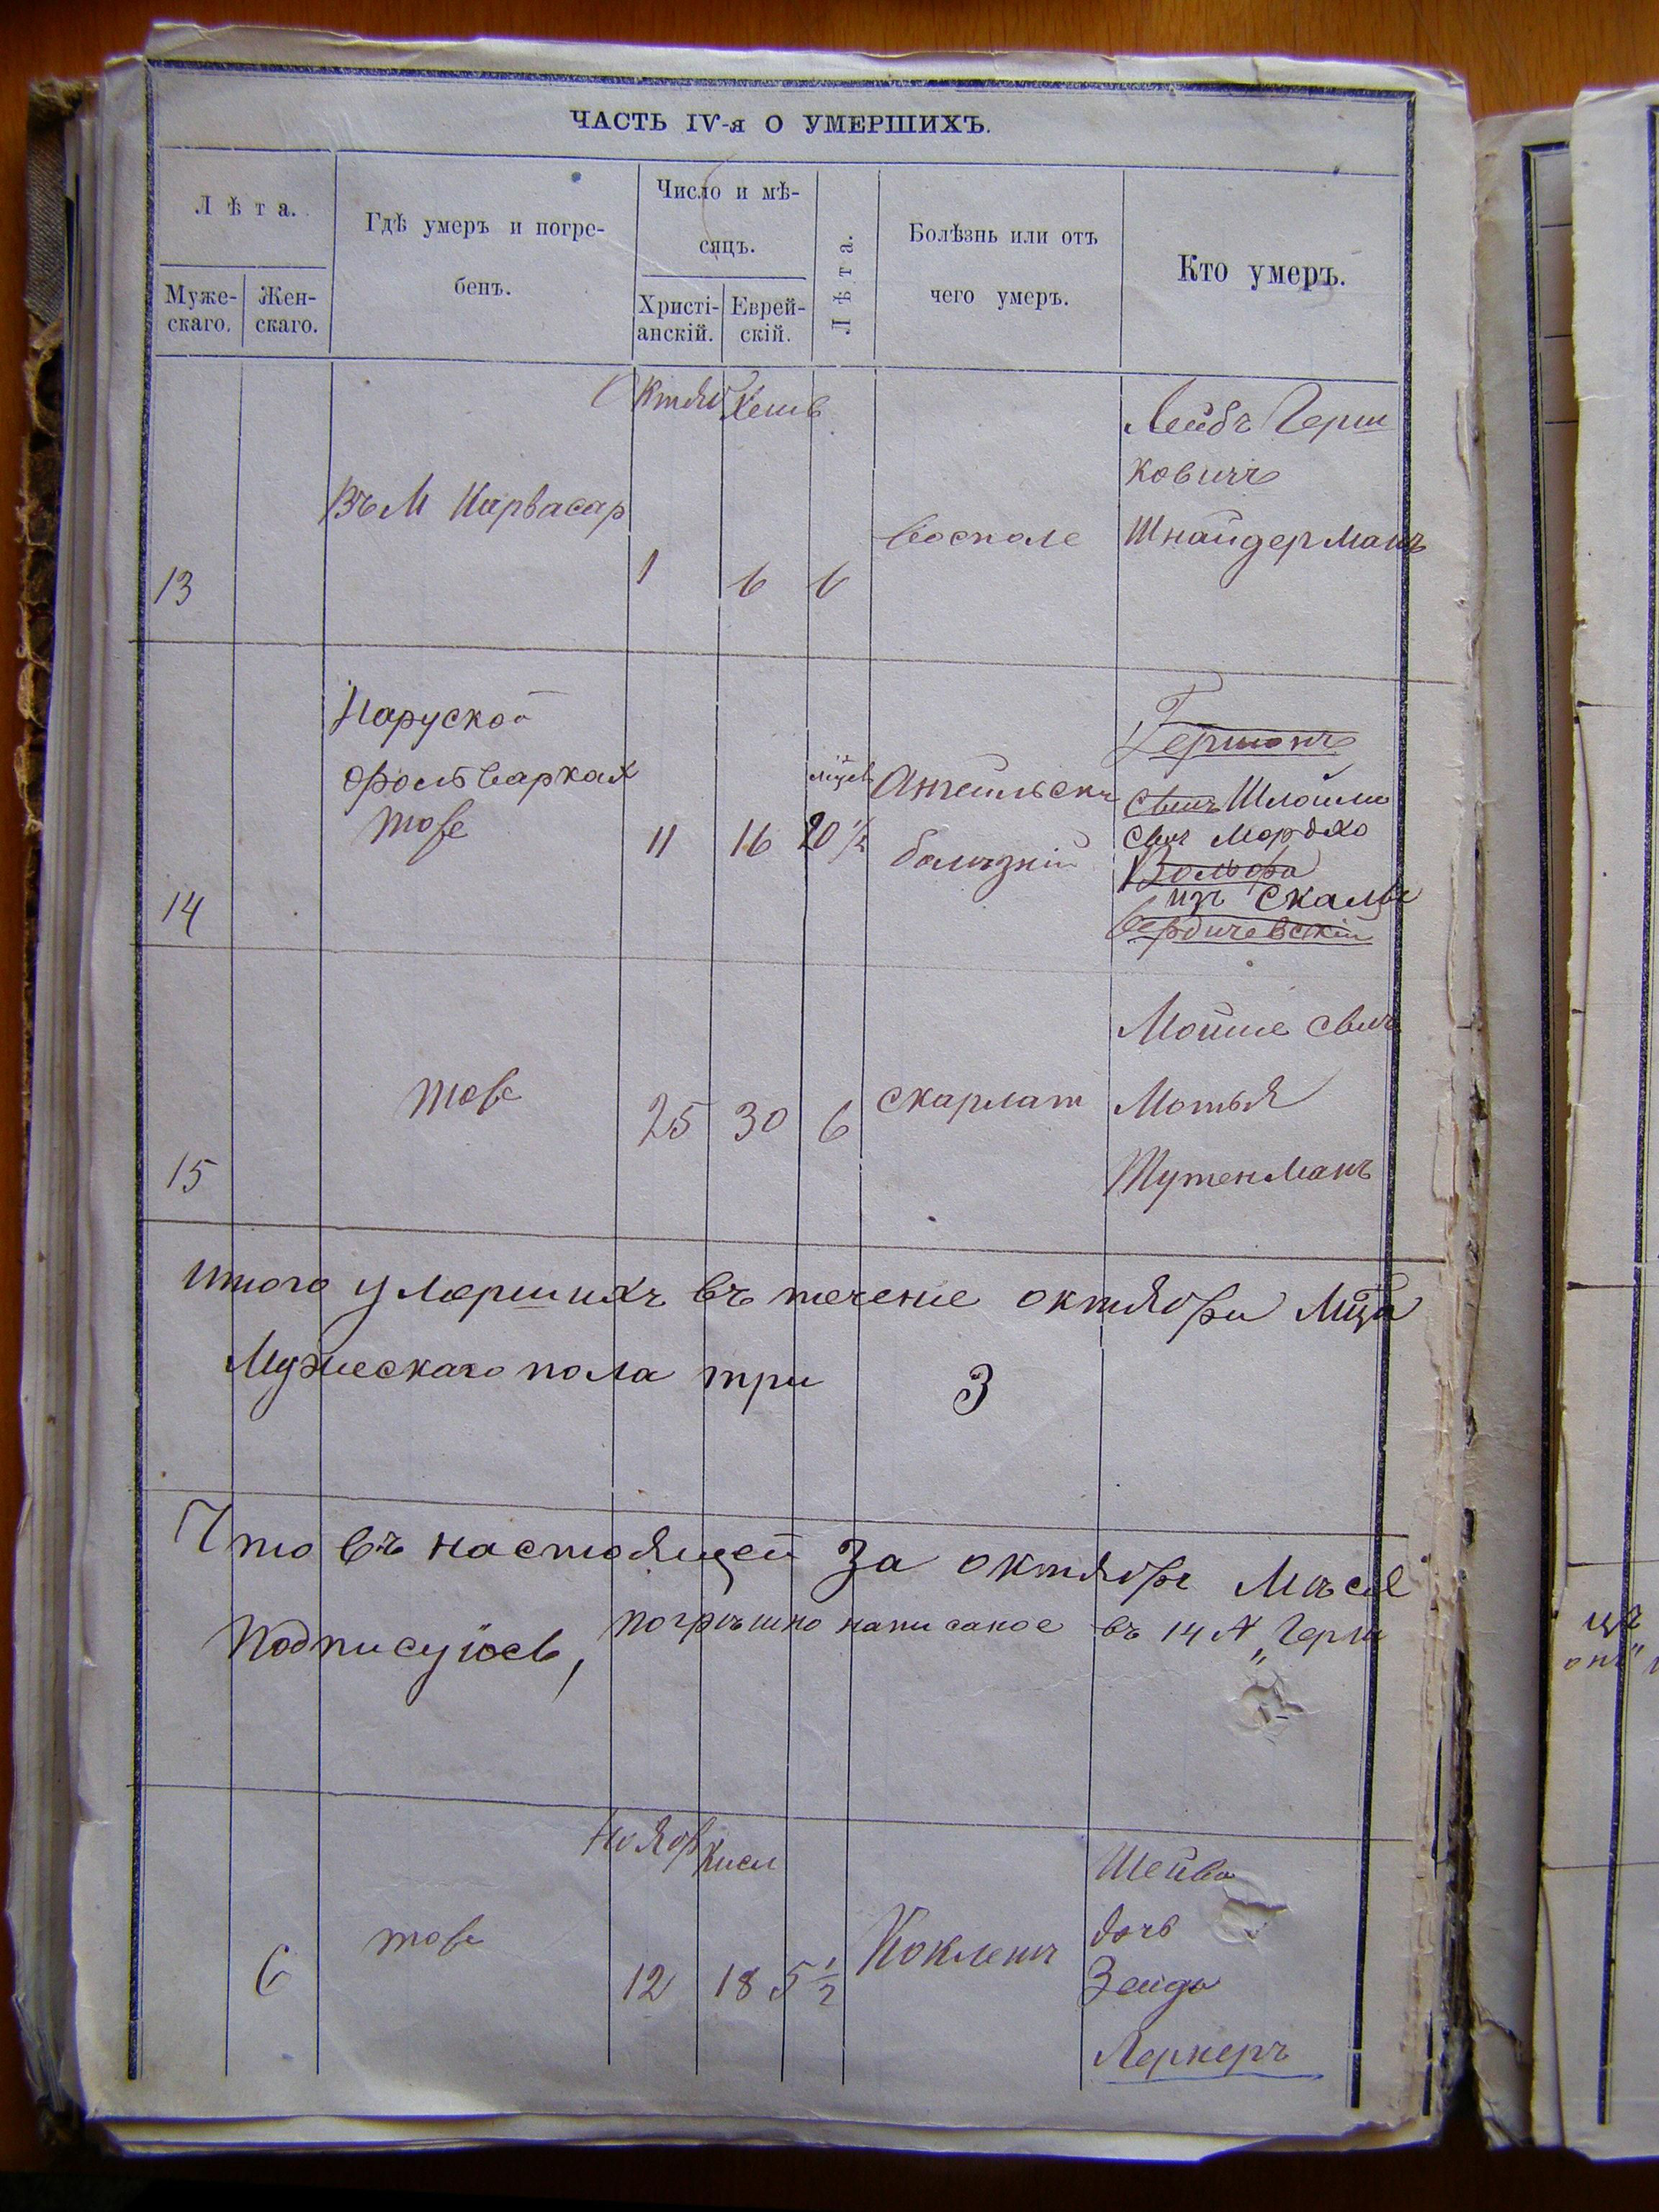 ЧАСТЬ IV-я О УМЕРШИХЪ.
Лѣта.
Муже-
скаго.
Жен-
скаго.
Гдѣ умеръ и погре-
бенъ.
Число и мѣ-
сяцъ.
Христі-
анскій.
Еврей-
скій.
Лѣта.
Болѣзнь или отъ
чего умеръ.
Кто умеръ.
Октяб Хешв
13
Въ М Карвасар
1
6
6
воспале
Лейбъ Герш
ковичъ
Шнайдерманъ
14
Наруской
фольварках
тоже
11
16
20 1/2
Ангельскъ
болѣзній
Гершонъ
свинъ Шлойми
свинъ Мордхо
Вольфа
изъ Скалы
Бердичевскій
15
тоже
25
30
6
скарлат
Мойше свинъ
Мотья
Тутенманъ
Итого умершихъ въ течение октября Мца
Мужескаго пола три 3
Что въ настоящей за октябрь Мѣся
Подписуюсь, погрѣшно написаное въ 14 № „Герш
цъ
онъ"
Нояб Кисл
6
тоже
12
18
5 1/2
Коклешъ
Шейва
дочь
Зейда
Лернеръ